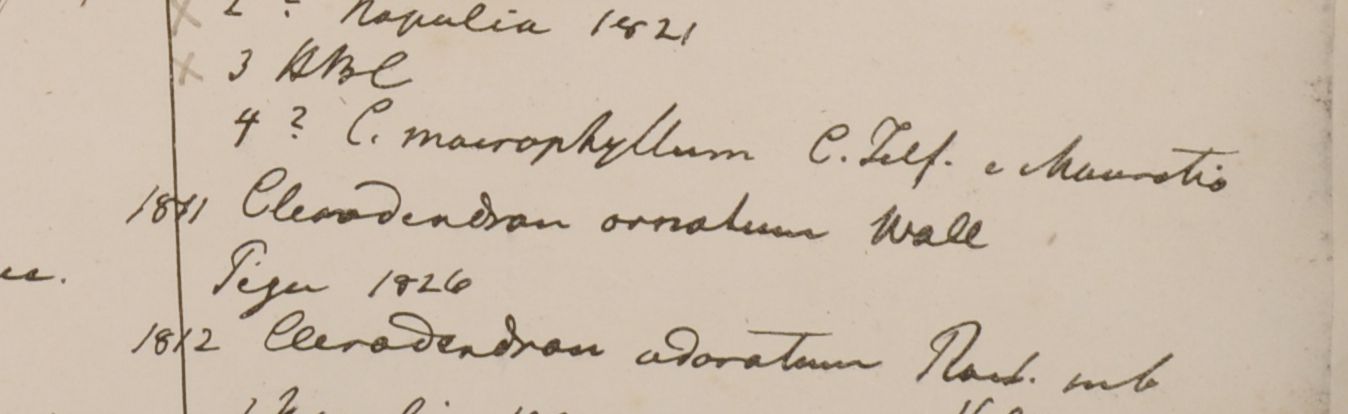 2 ? Napalia 1821
3 HBC
4 ? C. macrophyllum C. Telf. e Mauritio
1811 Clerodendron ornatum Wall
Pegu 1826
ec.
1812 Clerodendron odoratum Roxb.